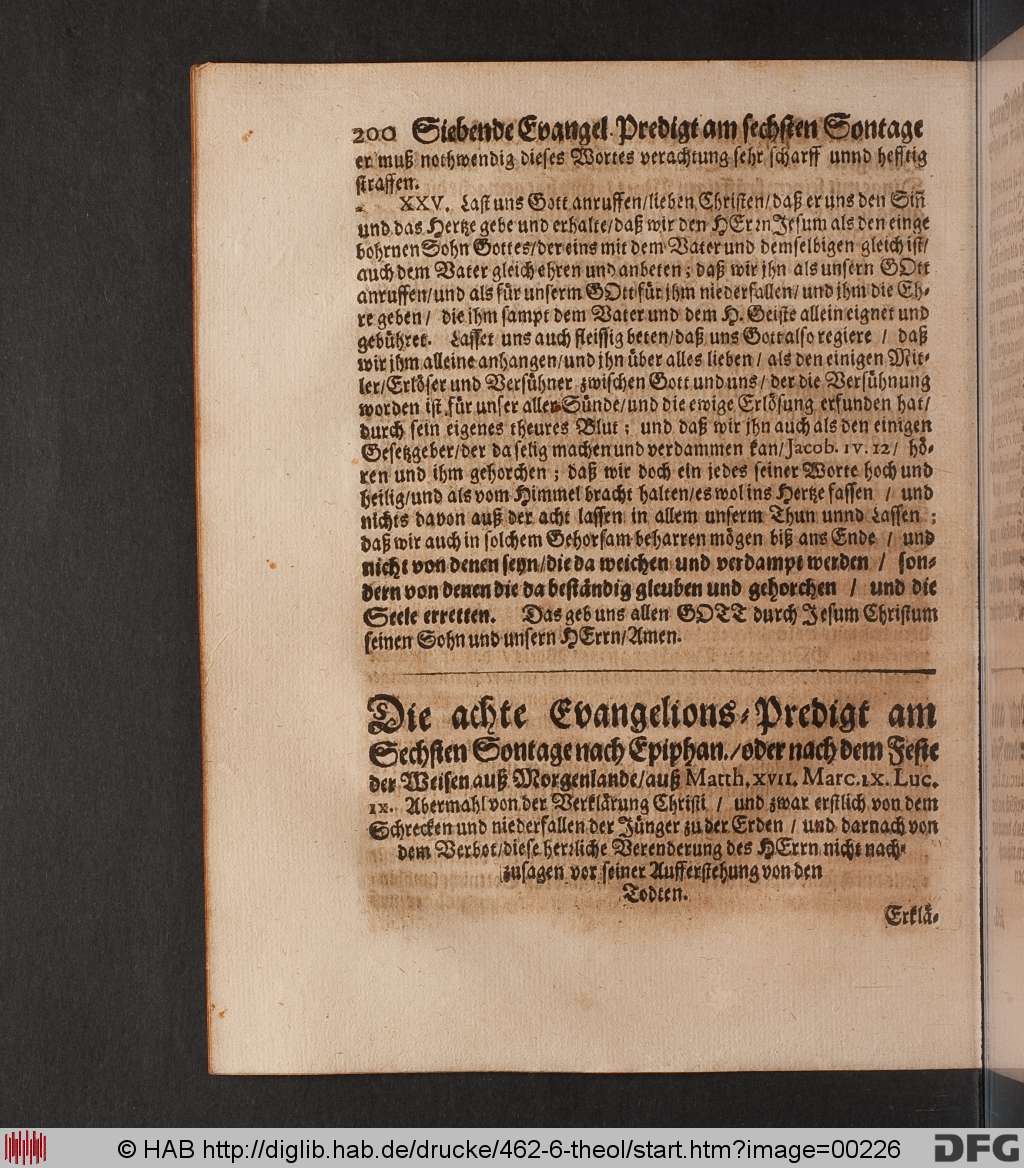 200 Siebende Evangel. Predigt am sechsten Sontage
er muß nothwendig dieses Wortes verachtung sehr scharff unnd hefftig
straffen.
XXV. Last uns Gott anruffen/lieben Christen/daß er uns den Siñ
und das Hertze gebe und erhalte/daß wir den HErrn Jesum als den einge
bohrnen Sohn Gottes/der eins mit dem Vater und demselbigen gleich ist/
auch dem Vater gleich ehren und anbeten; daß wir jhn als unsern GOtt
anruffen/und als für unserm GOtt für jhm niederfallen/und jhm die Eh-
re geben/ die jhm sampt dem Vater und dem H. Geiste allein eignet und
gebühret. Lasset uns auch fleissig beten/daß uns Gott also regiere / daß
wir jhm alleine anhangen/und jhn über alles lieben/ als den einigen Mit-
ler/Erlöser und Versühner zwischen Gott und uns/ der die Versühnung
worden ist für unser aller Sünde/und die ewige Erlösung erfunden hat/
durch sein eigenes theures Blut; und daß wir jhn auch als den einigen
Gesetzgeber/der da selig machen und verdammen kan/Jacob. IV. 12/ hö-
ren und ihm gehorchen; daß wir doch ein jedes seiner Worte hoch und
heilig/und als vom Himmel bracht halten/es wol ins Hertze fassen / und
nichts davon auß der acht lassen in allem unserm Thun unnd Lassen;
daß wir auch in solchem Gehorsam beharren mögen biß ans Ende / und
nicht von denen seyn/die da weichen und verdampt werden / son-
dern von denen die da beständig gleuben und gehorchen / und die
Seele erretten. Das geb uns allen GOTT durch Jesum Christum
seinen Sohn und unsern HErrn/Amen.
Die achte Evangelions-Predigt am
Sechsten Sontage nach Epiphan./oder nach dem Feste
der Weisen auß Morgenlande/auß Matth. XVII. Marc. IX. Luc.
IX. Abermahl von der Verklärung Christi / und zwar erstlich von dem
Schrecken und niederfallen der Jünger zu der Erden / und darnach von
dem Verbot/diese herrliche Verenderung des HErrn nicht nach-
zusagen vor seiner Aufferstehung von den
Todten.
Erklä-
© HAB http://diglib.hab.de/drucke/462-6-theol/start.htm?image=00226
DFG